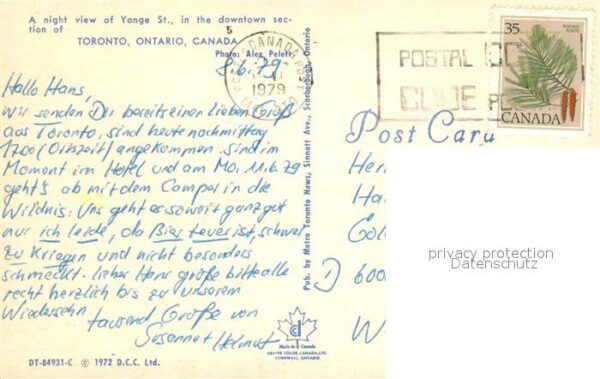 A night view of Yonge St., in the downtown sec-
tion of
TORONTO, ONTARIO, CANADA
Photo: Alex Pelett
8.6.79
Hallo Hans,
wir senden Dir bereits einen lieben Gruß
aus Toronto, sind heute nachmittag
1700 (Ortszeit) angekommen. sind im
Moment im Hotel und am Mo. 11.6.79
geht's ab mit dem Camper in die
Wildnis. Uns geht es soweit ganz gut
nur ich leide, da Bier teuer ist, schwer
zu kriegen und nicht besonders
schmeckt. lieber Hans grüße bitte alle
recht herzlich bis zu unserem
Wiedersehn
tausend Grüße von
Susanne + Helmut
DT-84931-C © 1972 D.C.C. Ltd.
Pub. by Metro Toronto News, Sinnott Ave., Scarborough, Ontario
Made in Canada
DEXTER COLOR, CANADA, LTD.
CORNWALL, ONTARIO
5
CANADA
1979
POSTAL CO
CODE PO
35
POSTAGE
POSTES
CANADA
Post Card
Her
Ha
D 600
W
privacy protection
Datenschutz